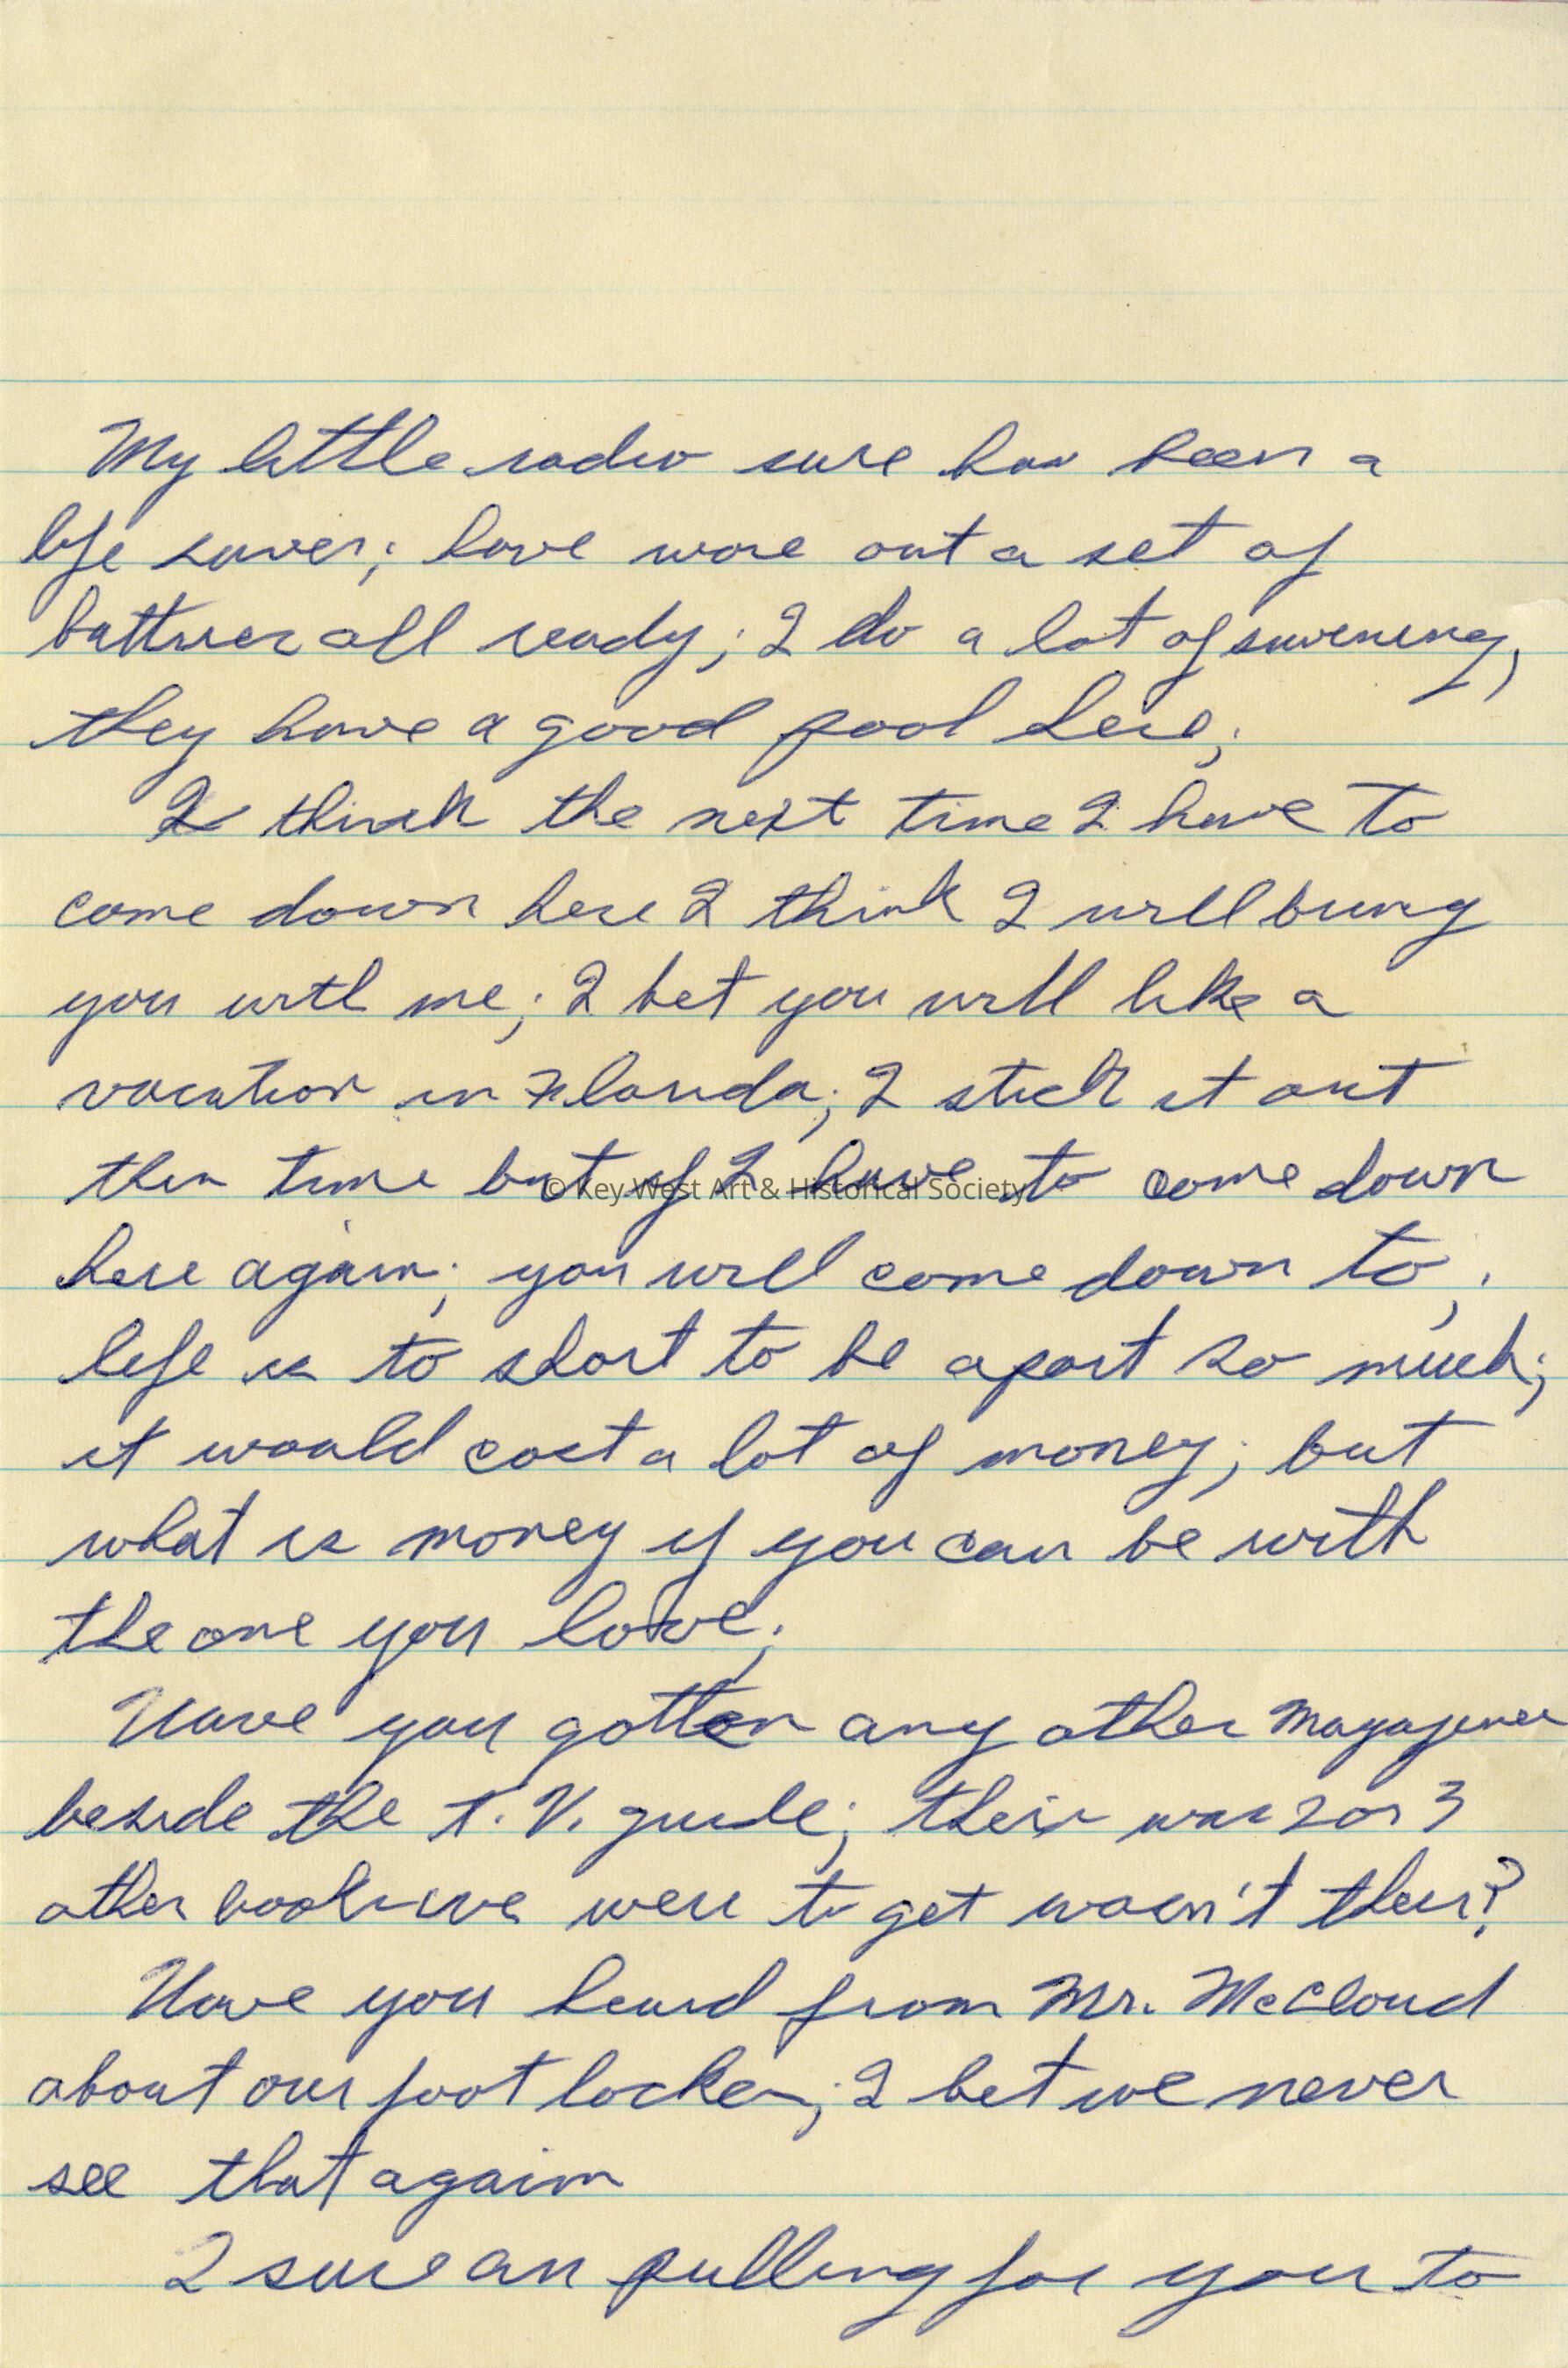 My little radio sure has been a
life saver; have wore out a set of
batteries all ready; I do a lot of swiming,
they have a good pool here;
I think the next time I have to
come down here I think I will bring
you with me; I bet you will like a
vacation in Florida; I stick it out
this time but if I have to come down
© Key West Art & Historical Society
here again; you will come down to,
life is to short to be apart so much;
it would cost a lot of money; but
what is money if you can be with
the one you love;
Have you gotten any other magazines
beside the T.V. guide; their was 2 or 3
other books we were to get wasn't their?
Have you heard from Mr. McCloud
about our foot locker; I bet we never
see that again
I sure am pulling for you to